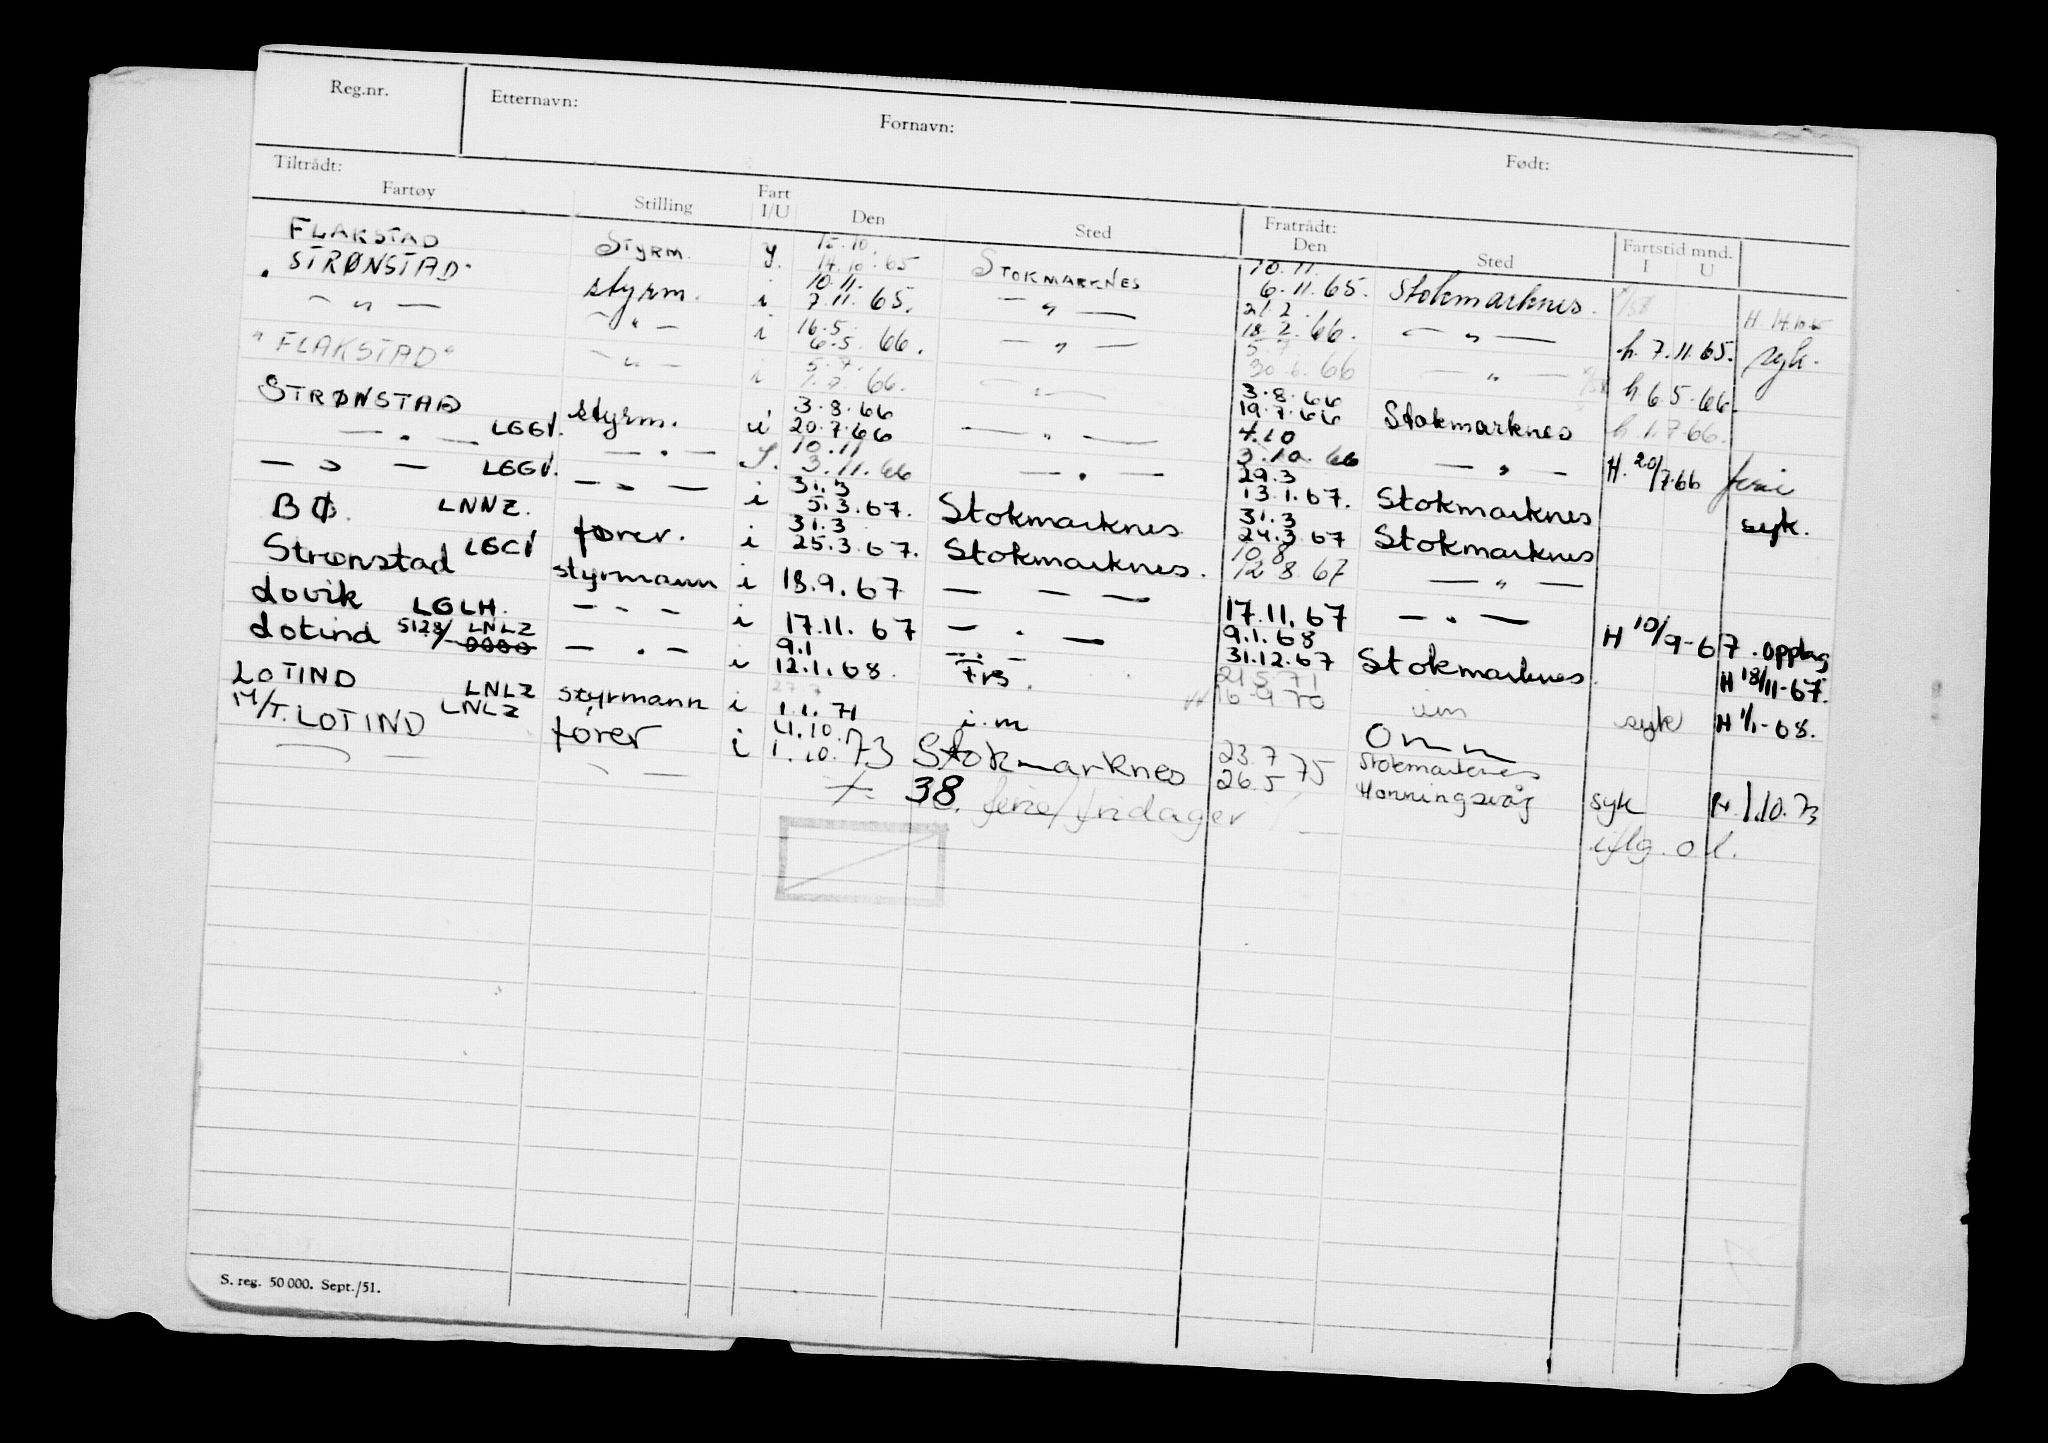 Reg.nr. Etternavn: Fornavn: Født:
Tiltrådt: Fratrådt: Fartstid mnd.
Fartøy Stilling Fart I/U Den Sted Den Sted I U
FLAKSTAD Styrm. y. 15.10. 14.10.65 STOKMARKNES 10.11. 6.11.65. Stokmarknes. H 14.10.65
STRØNSTAD styrm. i 10.11. 7.11.65. — " — 21.2. 18.2.66. — " — h. 7.11.65. syk.
— " — — " — i 16.5. 6.5.66. — " — 5.7. 30.6.66 — " — h 6.5.66.
"FLAKSTAD" — " — i 5.7. 1.7.66. — " — 3.8.66 19.7.66 Stokmarknes h. 1.7.66.
STRØNSTAD LGGV. styrm. i 3.8.66 20.7.66 — " — 4.10 3.10.66 — " — H. 20/7.66 ferie
— " — LGGV. — " — 10.11 3.11.66 — " — 29.3 13.1.67. Stokmarknes syk.
— " — — " — i 31.3 5.3.67. Stokmarknes 31.3 24.3.67 Stokmarknes
BØ. LNNZ. fører. i 31.3 25.3.67. Stokmarknes. 10.8 12 8 67 — " —
Strønstad styrmann i 18.9.67 — — — 17.11.67 — " — H 10/9-67. opplag
Lovik LGLH. — " — i 17.11.67 — . — 9.1.68 31.12.67 Stokmarknes. H 18/11-67.
Lotind 5128/ LNLZ — . — i 9.1 12.1.68. 21 5 71 16 9 70 syk H 1/1-68.
LOTIND LNLZ styrmann i 1.1.71 i.m
M/T. LOTIND LNLZ fører i 4.10. 1.10.73 Stokmarknes 23.7 26.5 75 Stokmarknes Honningsvåg syk 1.10.73
38. ferie/fridager iflg. o l.
S. reg. 50 000. Sept./51.